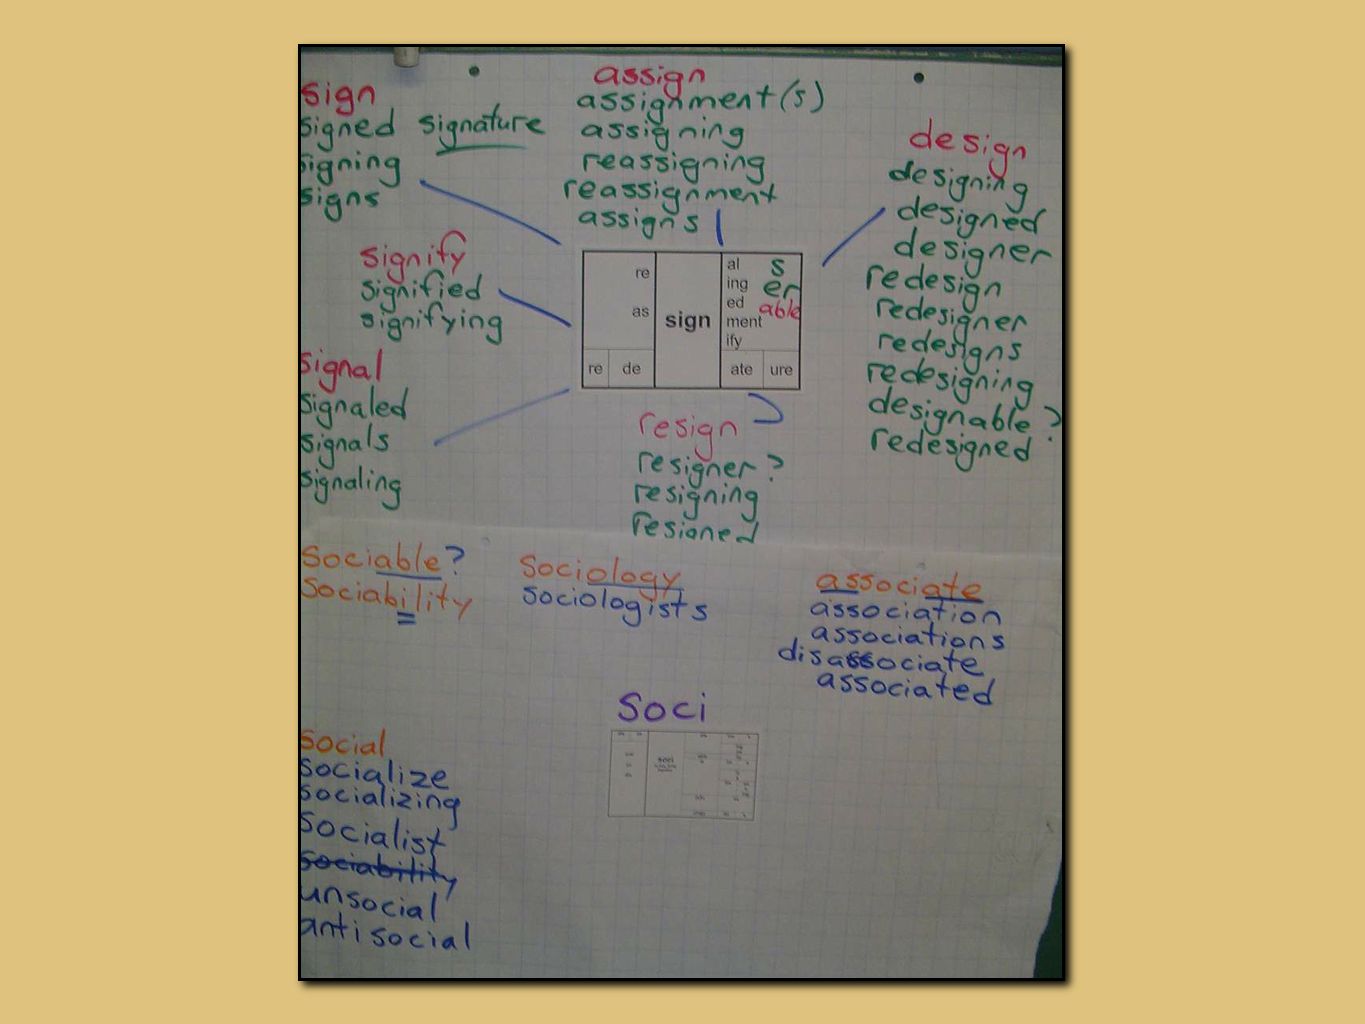 sign
signed signature
signing
signs
assign
assignment(s)
assigning
reassigning
reassignment
assigns
design
designing
designed
designer
redesign
redesigner
redesigns
redesigning
designable?
redesigned
signify
signified
signifying
signal
signaled
signals
signaling
re
as
re de
sign
al s
ing er
ed able
ment
ify
ate ure
resign
resigner?
resigning
resigned
sociable?
sociability
sociology
sociologists
associate
association
associations
disassociate
associated
soci
soci
social
socialize
socializing
socialist
sociability
unsocial
antisocial